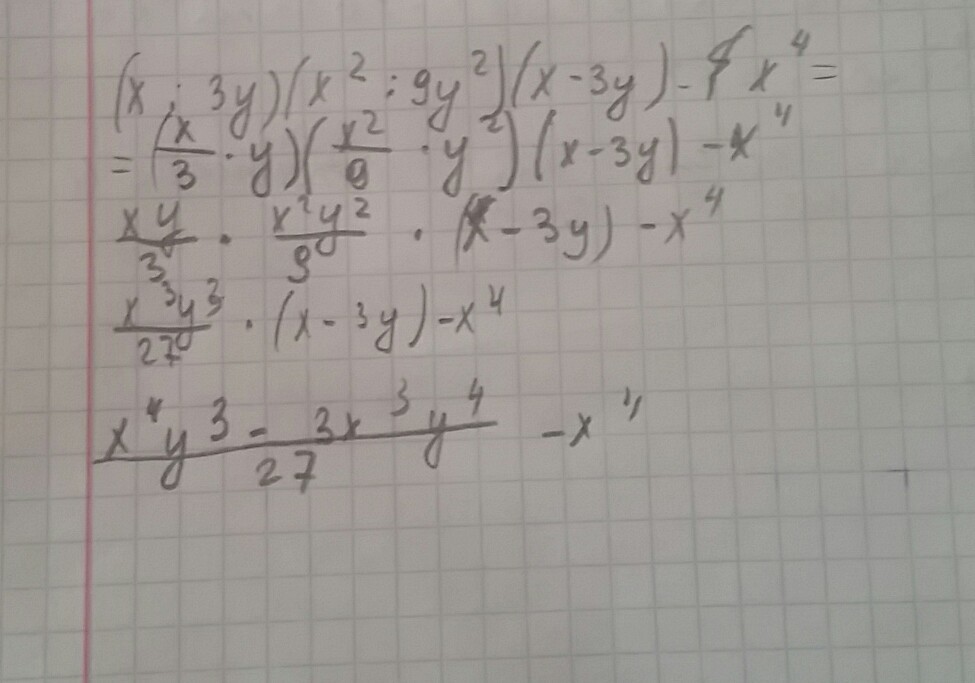 (x : 3y)(x² : 9y²)(x - 3y) - x⁴ =
= (x/3 · y)(x²/9 · y²)(x - 3y) - x⁴
xy/3 · x²y²/9 · (x - 3y) - x⁴
x³y³/27 · (x - 3y) - x⁴
x⁴y³ - 3x³y⁴/27 - x⁴